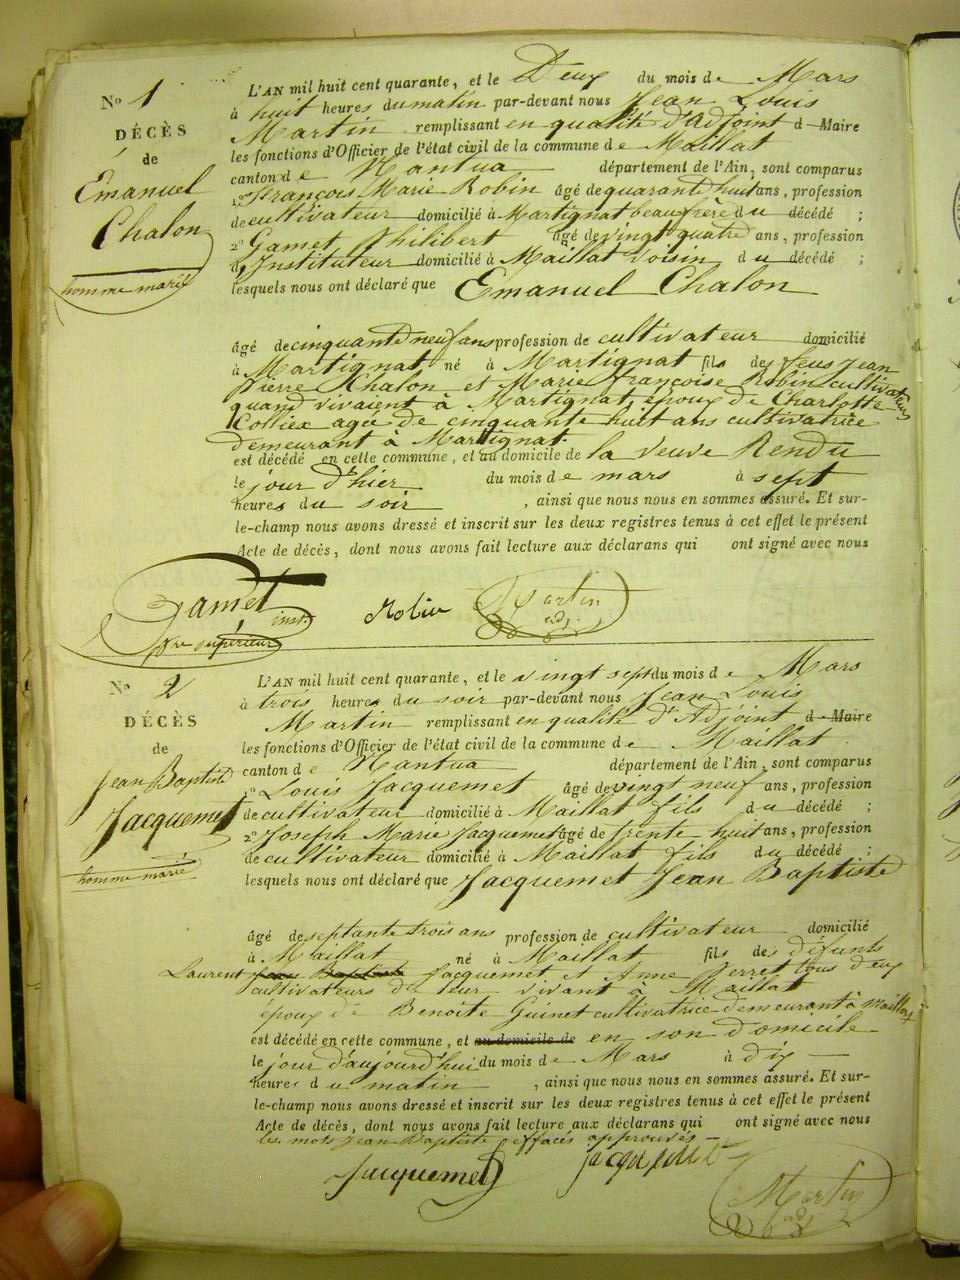 N.o 1
DÉCÈS
de
Emanuel
Chalon
homme marié
L'AN mil huit cent quarante, et le Deux du mois de Mars
à huit heures du matin par-devant nous Jean Louis
Martin remplissant en qualité d'Adjoint d-Maire
les fonctions d'Officier de l'état civil de la commune de Maillat
canton de Nantua département de l'Ain, sont comparus
1.o François Marie Robin âgé de quarante huit ans, profession
de cultivateur domicilié à Martignat beaufrère du décédé ;
2.o Gamet Philibert âgé de vingt quatre ans, profession
d'Instituteur domicilié à Maillat voisin du décédé ;
lesquels nous ont déclaré que Emanuel Chalon
âgé de cinquante neuf ans profession de cultivateur domicilié
à Martignat né à Martignat fils des feus Jean
Pierre Chalon et Marie françoise Robin cultivateurs
quand vivaient à Martignat, époux de Charlotte
Colliex agée de cinquante huit ans cultivatrice
demeurant à Martignat.
est décédé en cette commune, et au domicile de la veuve Rendu
le jour d'hier du mois de mars à sept
heures du soir , ainsi que nous nous en sommes assuré. Et sur-
le-champ nous avons dressé et inscrit sur les deux registres tenus à cet effet le présent
Acte de décès, dont nous avons fait lecture aux déclarans qui ont signé avec nous
Gamet inst.r Robin Martin
p.re supérieur adj.
N.o 2
DÉCÈS
de
Jean Baptiste
Jacquemet
homme marié
L'AN mil huit cent quarante, et le vingt sept du mois de Mars
à trois heures du soir par-devant nous Jean Louis
Martin remplissant en qualité d'Adjoint d-Maire
les fonctions d'Officier de l'état civil de la commune de Maillat
canton de Nantua département de l'Ain, sont comparus
1.o Louis Jacquemet âgé de vingt neuf ans, profession
de cultivateur domicilié à Maillat fils du décédé ;
2.o Joseph Marie Jacquemet âgé de trente huit ans, profession
de cultivateur domicilié à Maillat fils du décédé ;
lesquels nous ont déclaré que Jacquemet Jean Baptiste
âgé de septante trois ans profession de cultivateur domicilié
à Maillat né à Maillat fils des défunts
Laurent Jean Baptiste Jacquemet et Anne Perret tous deux
cultivateurs de leur vivant à Maillat
époux de Benoite Guinet cultivatrice demeurant à Maillat
est décédé en cette commune, et au domicile de en son domicile
le jour d'aujourd'hui du mois de Mars à dix
heures du matin , ainsi que nous nous en sommes assuré. Et sur-
le-champ nous avons dressé et inscrit sur les deux registres tenus à cet effet le présent
Acte de décès, dont nous avons fait lecture aux déclarans qui ont signé avec nous
les mots Jean Baptiste effacés approuvés
Jacquemet Jacquemet
Martin
adj.